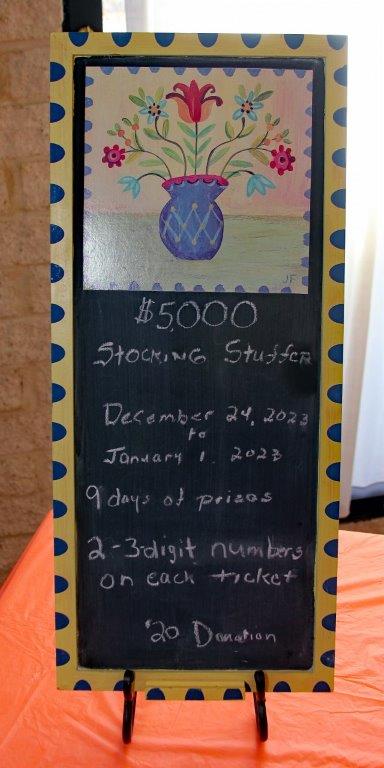 JF
$5000
Stocking Stuffer
December 24, 2023
to
January 1, 2023
9 days of prizes
2-3digit numbers
on each ticket
$20 Donation